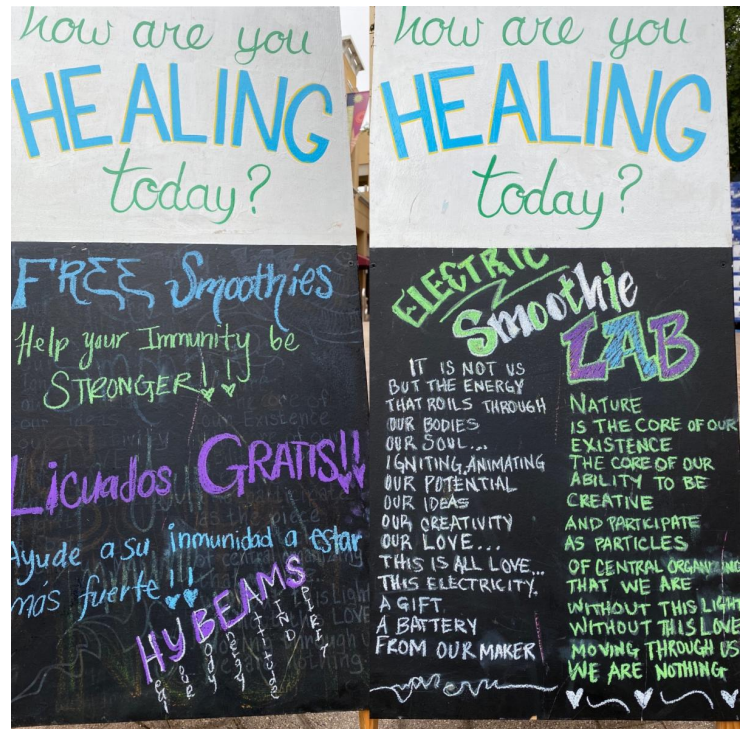 how are you
HEALING
today?
FREE Smoothies
Help your Immunity be
STRONGER!!
Licuados GRATIS!!
Ayude a su inmunidad a estar
más fuerte!!
HY BEAMS
how are you
HEALING
today?
ELECTRIC
Smoothie
LAB
IT IS NOT US
BUT THE ENERGY
THAT ROILS THROUGH
OUR BODIES
OUR SOUL...
IGNITING, ANIMATING
OUR POTENTIAL
OUR IDEAS
OUR CREATIVITY
OUR LOVE...
THIS IS ALL LOVE...
THIS ELECTRICITY.
A GIFT
A BATTERY
FROM OUR MAKER
NATURE
IS THE CORE OF OUR
EXISTENCE
THE CORE OF OUR
ABILITY TO BE
CREATIVE
AND PARTICIPATE
AS PARTICLES
OF CENTRAL ORGANIZING
THAT WE ARE
WITHOUT THIS LIGHT
WITHOUT THIS LOVE
MOVING THROUGH US
WE ARE NOTHING